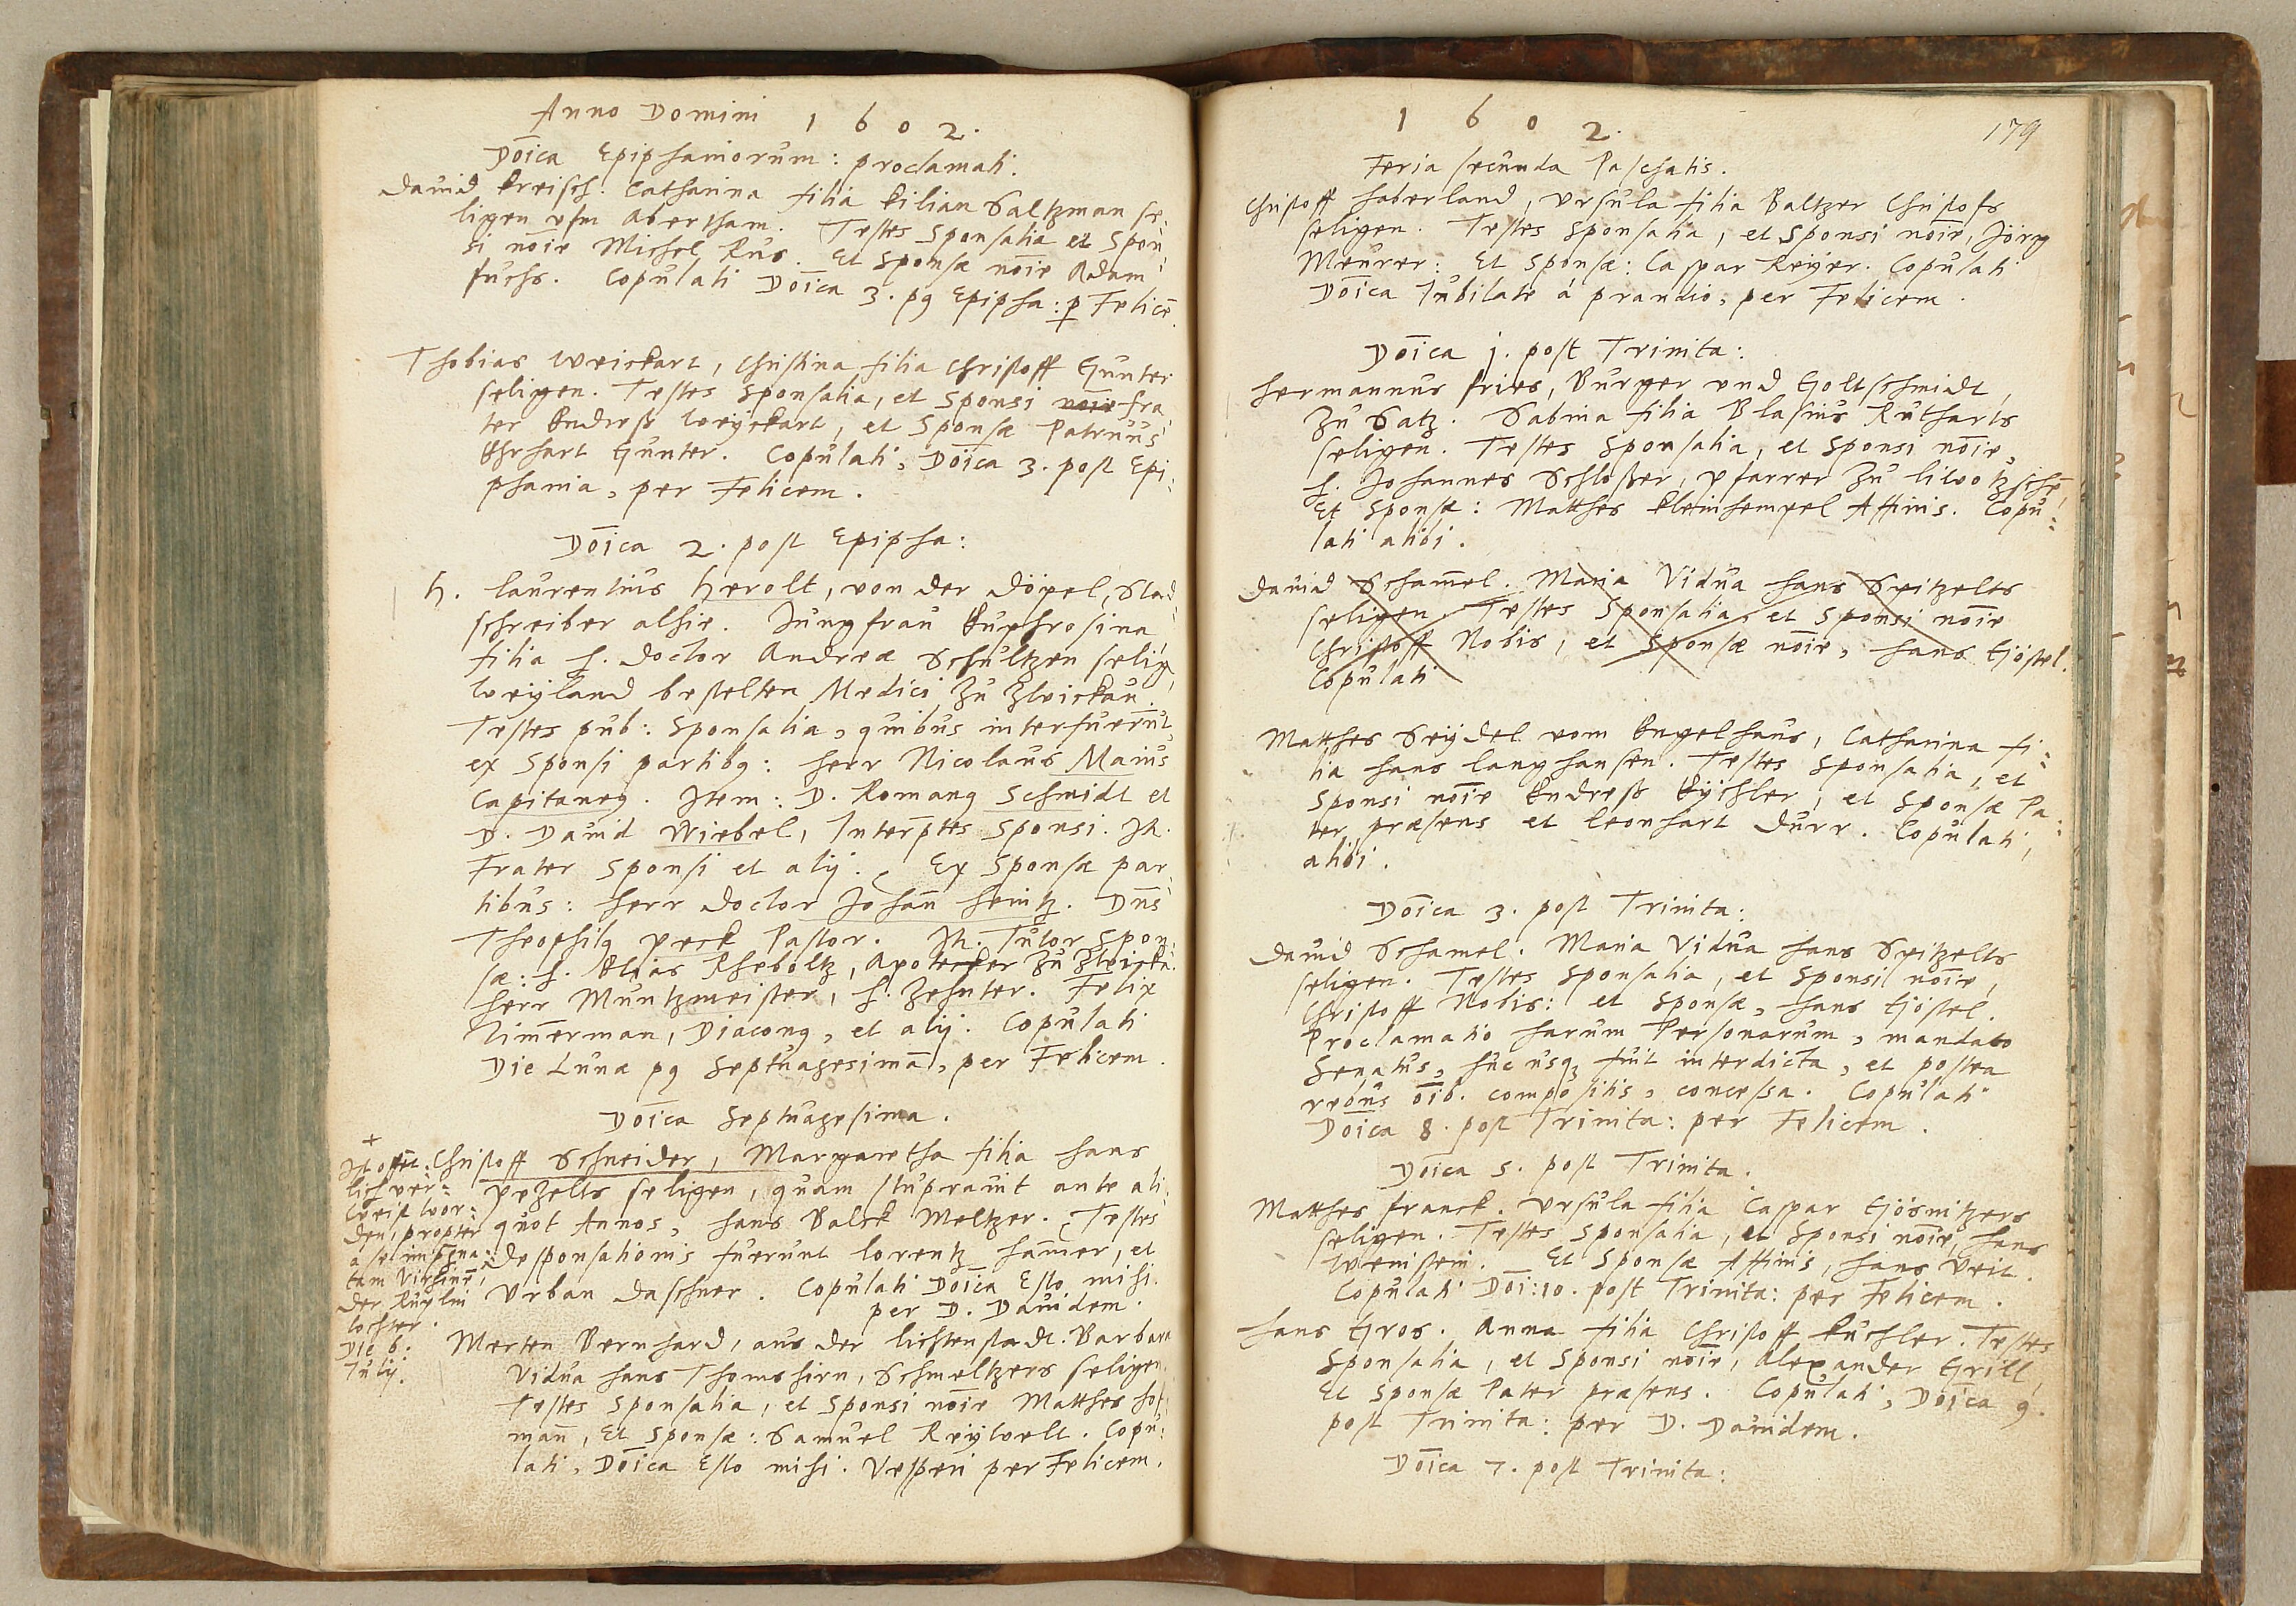 Anno Domini 1602.
Dōica Epiphaniorum: proclamati.
Dauid Kreisch. Catharina filia Kilian Saltzman se-
ligen vfm Abertham. Testes Sponsalia et Spon-
si nōie Michel Rus. Et Sponsæ nōie Adam
fuchs. Copulati Dōica 3. p9 Epipha: p Felicē.
Thobias Weickart, Christina filia Christoff Gunter
seligen. Testes Sponsalia, et Sponsi nōie fra-
ter Endreß Weyckart, et Sponsæ Patruus
Ehrhart Gunter. Copulati, Dōica 3. post Epi-
phania, per Felicem.
Dōica 2. post Epipha:
H. Laurentius Herolt, von der Döpel, Stad-
schreiber alhie. Jungfrau Euphrosina
filia H. Doctor Andreæ Schultzen selig,
Weyland bestelten Medici zu Zwickau.
Testes pub: Sponsalia, quibus interfuerūt,
ex Sponsi partib9: Herr Nicolaus Maius
Capitane9. Item: D. Roman9 Schmidt et
D. Dauid Wiebel, Interptes Sponsi. It.
Frater Sponsi et alij. Ex Sponsæ par-
tibus: Herr Doctor Johan̄ Heintz. Dn̄s
Theophil9 Peck Pastor. It. Tutor Spon-
sæ: H. Elias Rheboltz, Apotecker zu Zwicka.
Herr Muntzmeister, H. Zehnter. Felix
Zim̄erman, Diacon9, et alij. Copulati
Die Lunæ p9 Septuagesimā, per Felicem.
Dōica Septuagesima.
Christoff Schneider, Margaretha filia Hans
Pezelts seligen, quam stuprauit ante ali-
quot Annos, Hans Balck Meltzer. Testes
desponsationis fuerunt Lorentz Ham̄er, et
Vrban Daschner. Copulati Dōica Esto mihi.
per D. Dauidem.
+
Ist offēt-
lich ver-
weist wor-
den, propter
a se impg̅na-
tam Virginē,
der Ruplin
tochter.
Die 6.
Julij.
Merten Bernhard, aus der Lichtenstadt. Barbara
Vidua Hans Thomshirn, Schmeltzers seligen.
Testes Sponsalia, et Sponsi nōie Matthes Hof-
man̄, Et Sponsæ: Samuel Reywelt. Copu-
lati, Dōica Esto mihi. Vesperi per Felicem.
1602.
179
Feria secunda Paschatis.
Christoff Haberland, Vrsula filia Baltzer Christofs
seligen. Testes Sponsalia, et Sponsi nōie, Jörg
Meurer: Et Sponsæ: Caspar Reyer. Copulati
Dōica Jubilate á prandio, per Felicem.
Dōica j. post Trinita:
Hermannus Fries, Burger vnd Goltschmidt,
zu Satz. Sabina filia Blasius Rutharts
seligen. Testes Sponsalia, et Sponsi nōie,
H. Johannes Schloßer, Pfarrer zu
Et Sponsæ: Matthes Kleinhempel Affinis. Copu-
lati alibi.
Dauid Scham̄el. Maria Vidua Hans Seitzelts
seligen. Testes Sponsalia, et Sponsi nōie
Christoff Nobis, et Sponsæ nōie, Hans Göstel.
Copulati
Matthes Seydel vom Engelhaus, Catharina fi-
lia Hans Langhansen. Testes Sponsalia, et
Sponsi nōie Endreß Eychler, et Sponsæ Pa-
ter præsens et Leonhart Durr. Copulati,
alibi.
Dōica 3. post Trinita:
Dauid Schamel. Maria Vidua Hans Seitzelts
seligen. Testes Sponsalia, et Sponsi nōie,
Christoff Nobis: et Sponsæ, Hans Göstel.
Proclamatio harum Personarum, mandato
Senatus, huc usq3 fuit interdicta, et postea
rebus oīb. compositis, concessa. Copulati
Dōica 8. post Trinita: per Felicem.
Dōica 5. post Trinita.
Matthes Franck. Vrsula filia Caspar Gösnitzers
seligen. Testes Sponsalia, et Sponsi nōie, Hans
Wenistein. Et Sponsæ Affinis, Hans Veit.
Copulati Dōi: 10. post Trinita: per Felicem.
Hans Gros. Anna filia Christoff Kuchler. Testes
Sponsalia, et Sponsi nōie, Alexander Grill,
Et Sponsæ Pater præsens. Copulati, Dōica 9.
post Trinita: per D. Dauidem.
Dōica 7. post Trinita: